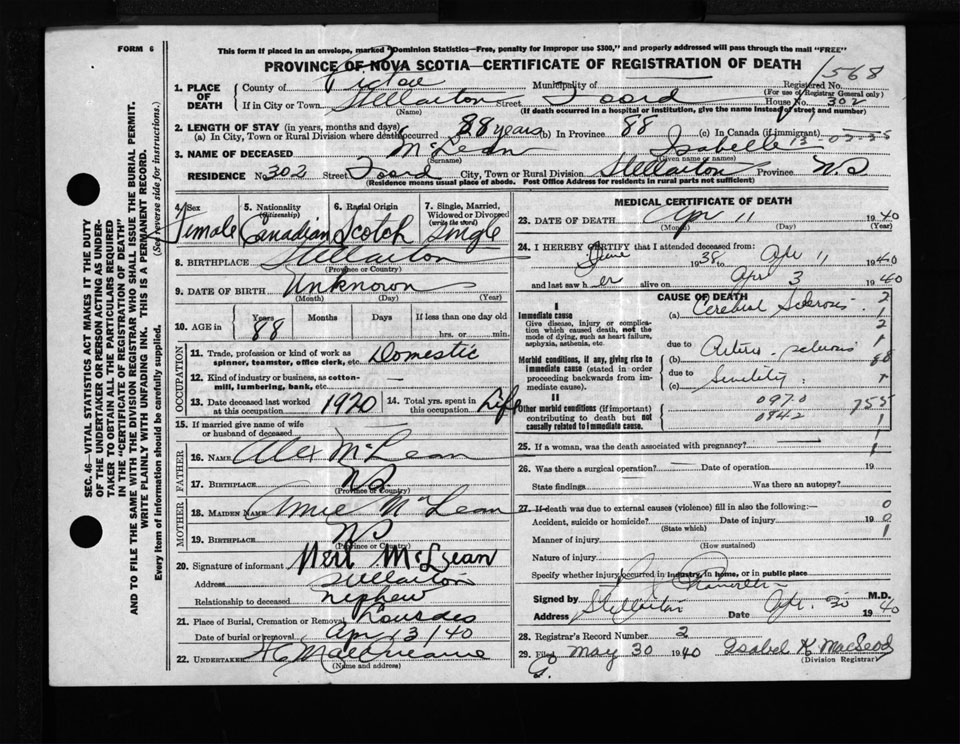 FORM 6
This form if placed in an envelope, marked "Dominion Statistics—Free, penalty for improper use $300," and properly addressed will pass through the mail "FREE"
PROVINCE OF NOVA SCOTIA—CERTIFICATE OF REGISTRATION OF DEATH
1. PLACE OF DEATH
County of Pictou
Municipality of —
Registered No. 1568
(For use of Registrar General only)
If in City or Town Stellarton Street Foord House No. 302
(Name) (If death occurred in a hospital or institution, give the name instead of street, and number)
2. LENGTH OF STAY (in years, months and days)
(a) In City, Town or Rural Division where death occurred 88 years (b) In Province 88 (c) In Canada (if immigrant)
3. NAME OF DECEASED McLean Isabelle
(Surname) (Given name or names)
RESIDENCE No. 302 Street Foord City, Town or Rural Division Stellarton Province N.S
(Residence means usual place of abode. Post Office Address for residents in rural parts not sufficient)
4. Sex Female
5. Nationality (Citizenship) Canadian
6. Racial Origin Scotch
7. Single, Married, Widowed or Divorced (write the word) Single
8. BIRTHPLACE Stellarton
(Province or Country)
9. DATE OF BIRTH Unknown
(Month) (Day) (Year)
10. AGE in Years 88 Months Days If less than one day
hrs. or min.
OCCUPATION
11. Trade, profession or kind of work as spinner, teamster, office clerk, etc. Domestic
12. Kind of industry or business, as cotton-mill, lumbering, bank, etc. —
13. Date deceased last worked at this occupation 1920
14. Total yrs. spent in this occupation Life
15. If married give name of wife or husband of deceased —
FATHER
16. NAME Alex McLean
17. BIRTHPLACE N.S
(Province or Country)
MOTHER
18. MAIDEN NAME McLean
19. BIRTHPLACE N S
(Province or Country)
20. Signature of informant McLean
Address Stellarton
Relationship to deceased nephew
21. Place of Burial, Cremation or Removal Lourdes
Date of burial or removal Apr 13/40
22. UNDERTAKER
(Name and address)
MEDICAL CERTIFICATE OF DEATH
23. DATE OF DEATH Apr 11 1940
(Month) (Day) (Year)
24. I HEREBY CERTIFY that I attended deceased from:
June 1938 to Apr 11 1940
and last saw her alive on Apr 3 1940
CAUSE OF DEATH
I
Immediate cause
Give disease, injury or complication which caused death, not the mode of dying, such as heart failure, asphyxia, asthenia, etc.
(a) Cerebral Sclerosis
due to
Morbid conditions, if any, giving rise to immediate cause (stated in order proceeding backwards from immediate cause).
(b) Arterio-sclerosis
due to
(c) Senility
II
Other morbid conditions (if important) contributing to death but not causally related to immediate cause.
0970
0942
25. If a woman, was the death associated with pregnancy? —
26. Was there a surgical operation? — Date of operation 19
State findings Was there an autopsy?
27. If death was due to external causes (violence) fill in also the following:
Accident, suicide or homicide? Date of injury 19
(State which)
Manner of injury
(How sustained)
Nature of injury
Specify whether injury occurred in industry, in home, or in public place
Signed by M.D.
Address Stellarton Date Apr. 30 1940
28. Registrar's Record Number 2
29. Filed May 30 1940 Isabel K MacLeod
(Division Registrar)
SEC. 46—VITAL STATISTICS ACT MAKES IT THE DUTY
OF THE UNDERTAKER OR PERSON ACTING AS UNDERTAKER
TO OBTAIN ALL THE PARTICULARS REQUIRED
IN THE "CERTIFICATE OF REGISTRATION OF DEATH"
AND TO FILE THE SAME WITH THE DIVISION REGISTRAR WHO SHALL ISSUE THE BURIAL PERMIT.
WRITE PLAINLY WITH UNFADING INK. THIS IS A PERMANENT RECORD.
Every item of information should be carefully supplied. (See reverse side for instructions.)